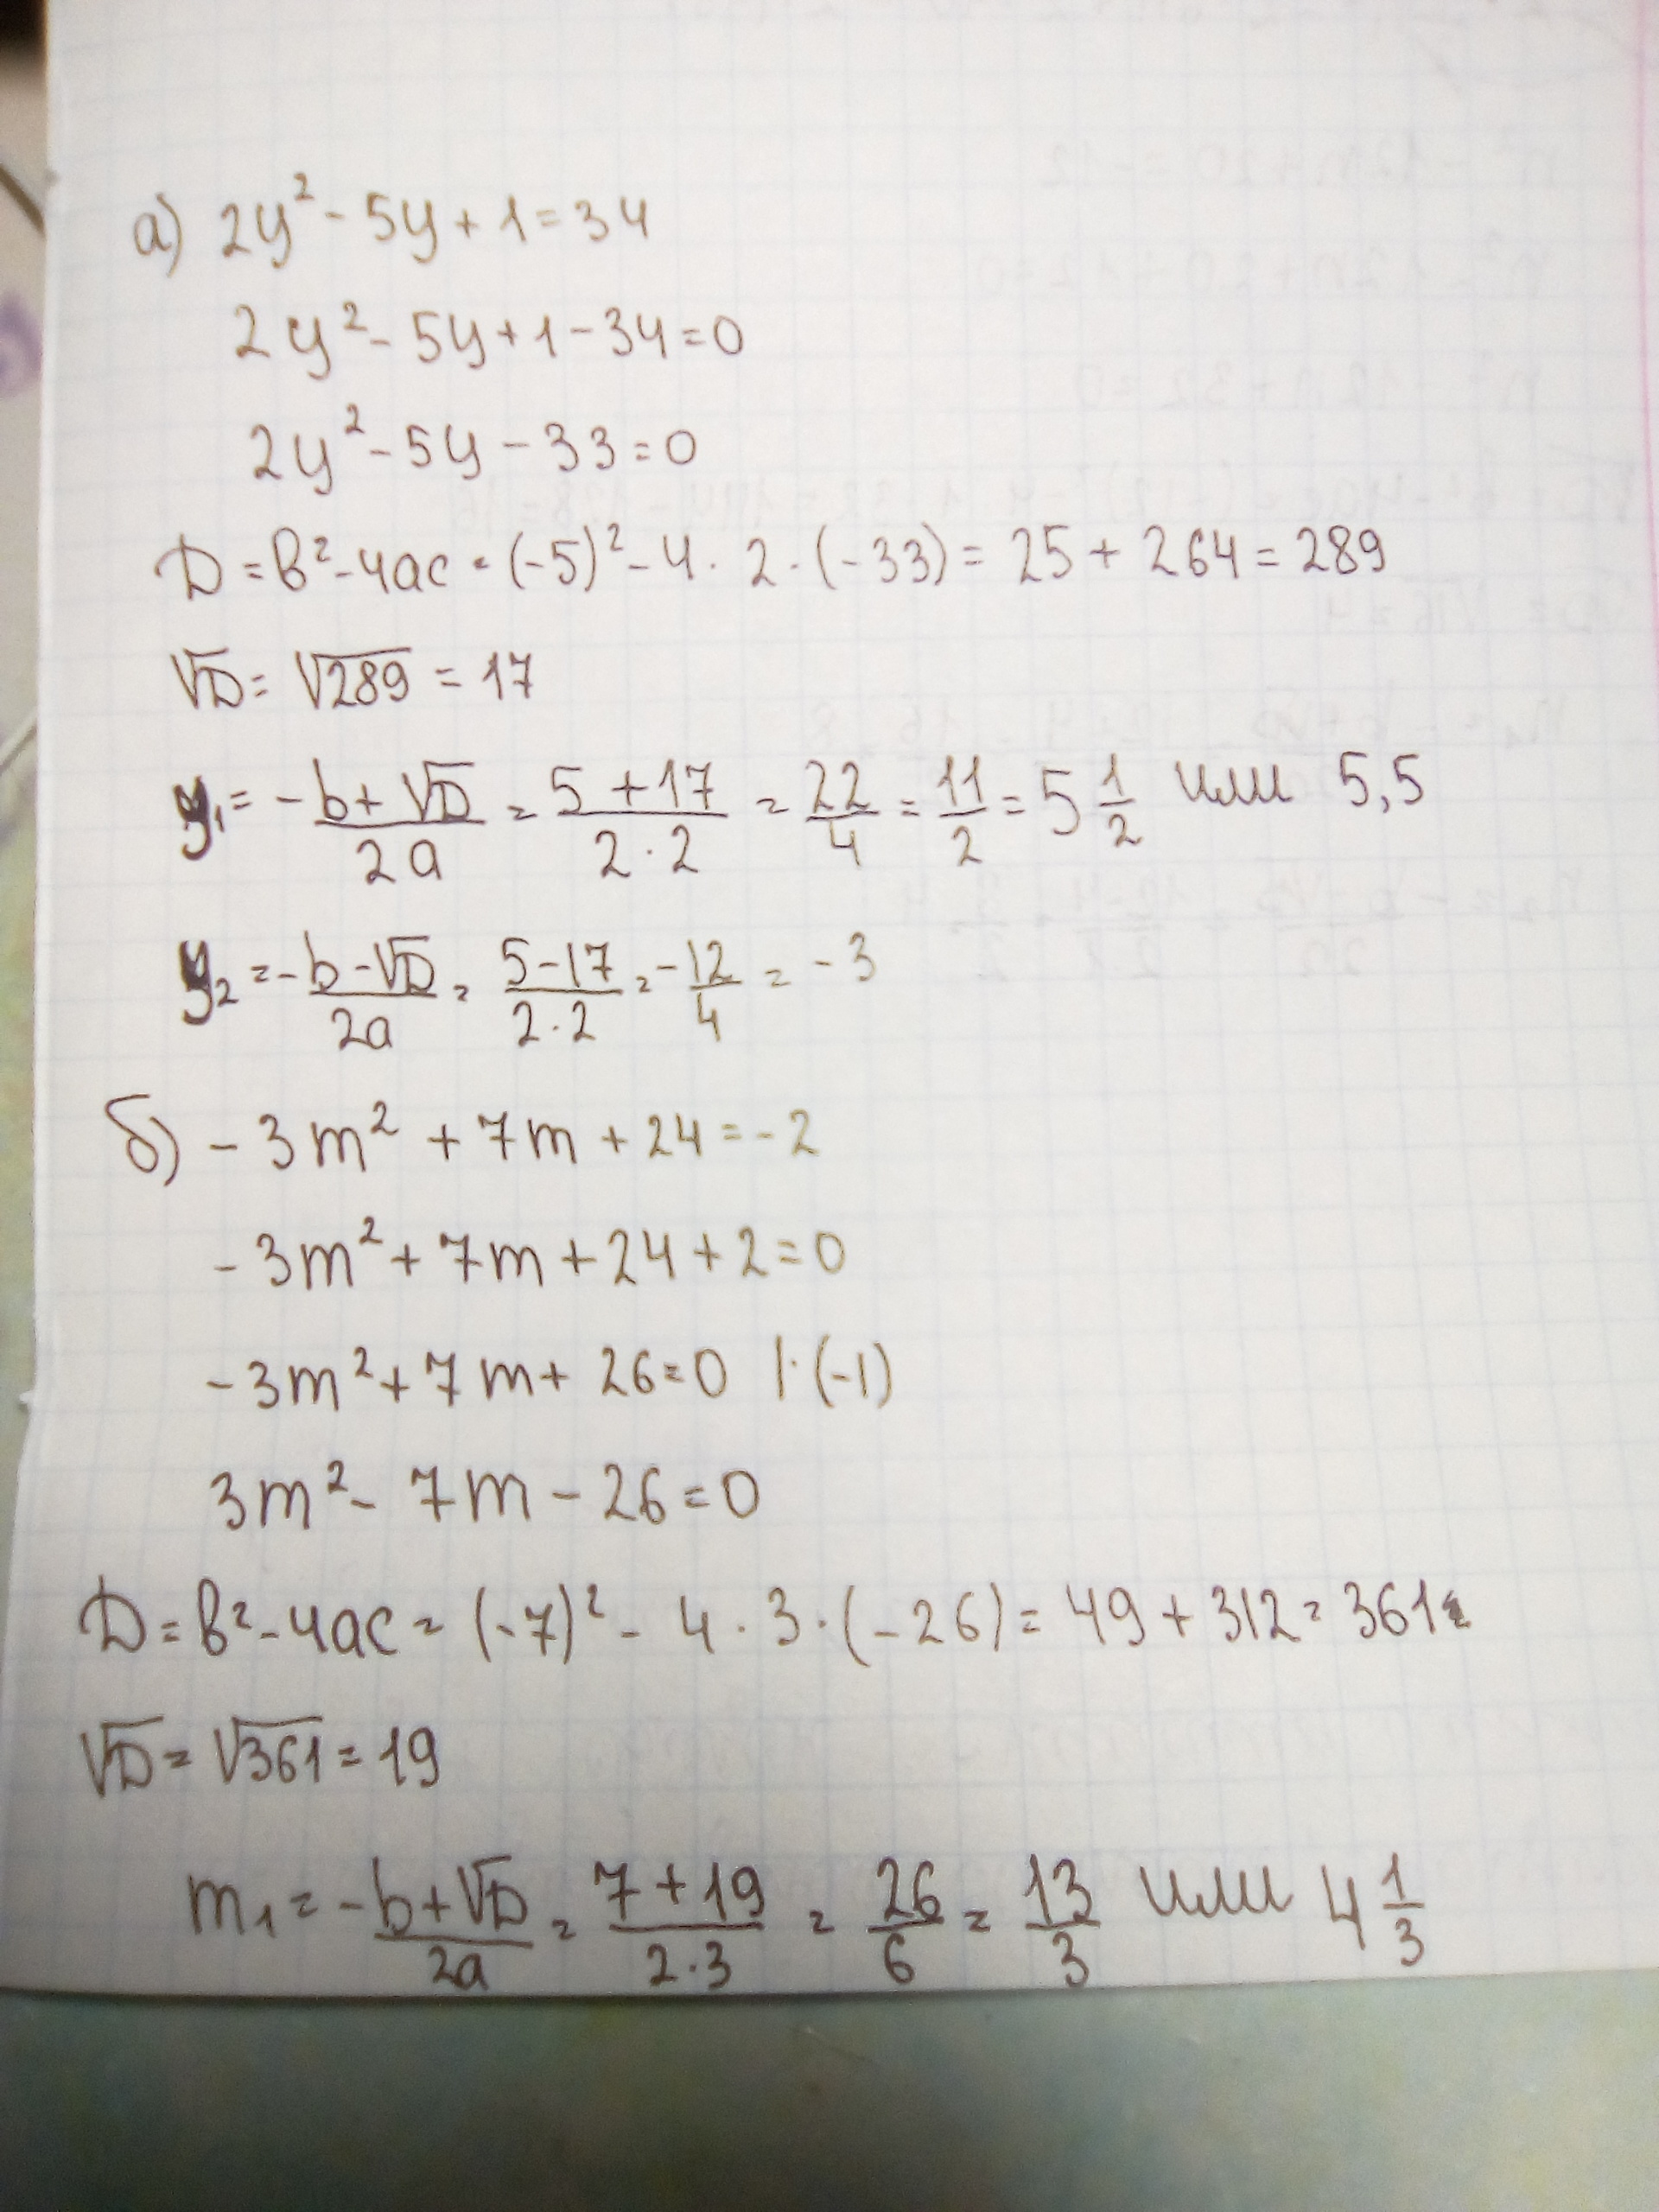 а) 2y² - 5y + 1 = 34
2y² - 5y + 1 - 34 = 0
2y² - 5y - 33 = 0
D = b² - 4ac = (-5)² - 4 · 2 · (-33) = 25 + 264 = 289
√D = √289 = 17
y₁ = -b + √D / 2a = 5 + 17 / 2 · 2 = 22/4 = 11/2 = 5 1/2 или 5,5
y₂ = -b - √D / 2a = 5 - 17 / 2 · 2 = - 12/4 = - 3
б) - 3m² + 7m + 24 = - 2
- 3m² + 7m + 24 + 2 = 0
- 3m² + 7m + 26 = 0 | · (-1)
3m² - 7m - 26 = 0
D = b² - 4ac = (-7)² - 4 · 3 · (-26) = 49 + 312 = 361
√D = √361 = 19
m₁ = -b + √D / 2a = 7 + 19 / 2 · 3 = 26/6 = 13/3 или 4 1/3